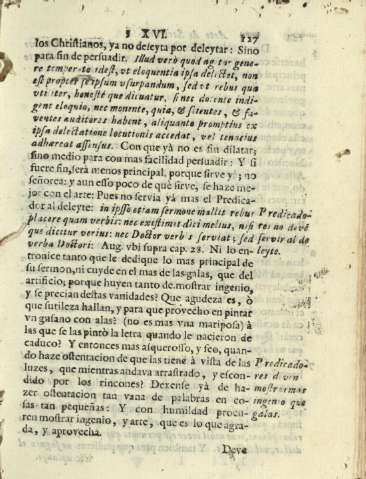 § XVI. 127
los Christianos, ya no deleyta por deleytar: Sino
para fin de persuadir. Illud verò quod agitur gene-
re temperato idest, vt eloquentia ipsa delectet, non
est propter se ipsum vsurpandum, sed vt rebus quæ
vtiliter, honestè que dicuntur, si nec docente indi-
gent eloquio, nec monente, quia, & scientes, & fa-
ventes auditores habent, aliquanto promptius ex
ipsa delectatione locutionis accedat, vel tenacius
adhæreat assensus. Con que yà no es fin dilatar;
sino medio para con mas facilidad persuadir: Y si
fuere fin, serà menos principal, porque sirve yà; no
señorea: y aun esso poco de què sirve, se haze me-
jor con el arte: Pues no servia yà mas el Predica-
dor al deleyte: in ipso etiam sermone mallit rebus
placere quam verbis: nec existimet dici melius, nisi
que dicitur verius: nec Doctor verbis serviat; sed
verba Doctori: Aug. vbi supra cap. 28. Ni lo en-
tronice tanto que le dedique lo mas principal de
su sermon, ni cuyde en el mas de las galas, que del
artificio; porque huyen tanto de mostrar ingenio,
y se precian destas vanidades? Que agudeza es, ò
que sutileza hallan, y para que provecho en pintar
vn gusano con alas? (no es mas vna mariposa) à
las que se las pintò la letra quando le nacieron de
caduco? Y entonces mas asqueroso, y feo, quan-
do haze ostentacion de que las tiene à vista de las
luzes, que mientras andava arrastrado, y escon-
dido por los rincones? Dexense yà de ha-
zer ostentacion tan vana de palabras en co-
sas tan pequeñas: Y con humildad procu-
ren mostrar ingenio, y arte, que es lo que agra-
da, y aprovecha.
Deve
Predicado-
res no devē
servir al de
leyte.
Predicado-
res deven
mostrar mas
ingenio que
galas.